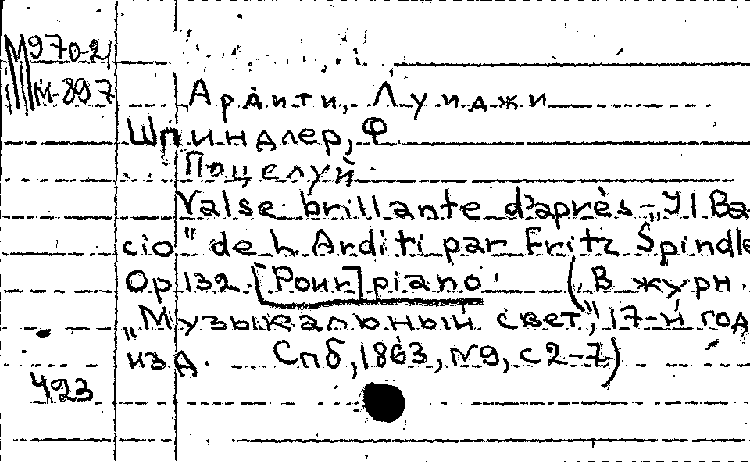 М970-2
М-897
Ардити, Луиджи
Шпиндлер, Ф
Поцелуй
Valse brillante d'après „Il Ba
cio" de L Arditi par Fritz Spindle
Op 132. [Pour] piano. (В журн.
„Музыкальный свет", 17-й год
изд. Спб, 1863, N9, с 2-7)
423